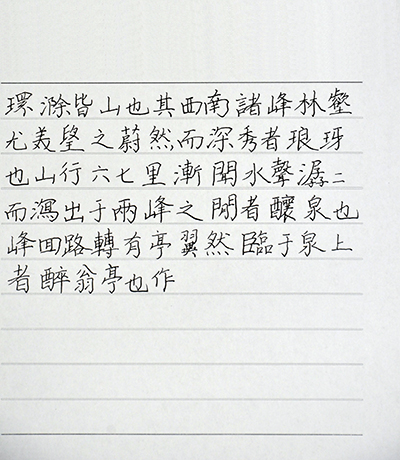 環滁皆山也其西南諸峰林壑
尤美望之蔚然而深秀者琅玡
也山行六七里漸聞水聲潺〻
而瀉出于兩峰之間者釀泉也
峰回路轉有亭翼然臨于泉上
者醉翁亭也作